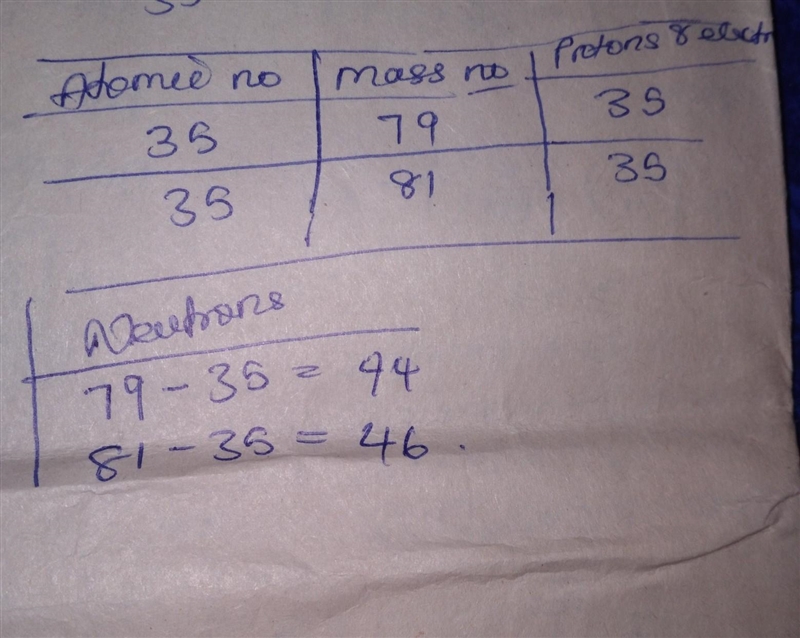 Atomic no | mass no | Protons & electr
35 | 79 | 35
35 | 81 | 35
Neutrons
79 - 35 = 44
81 - 35 = 46.